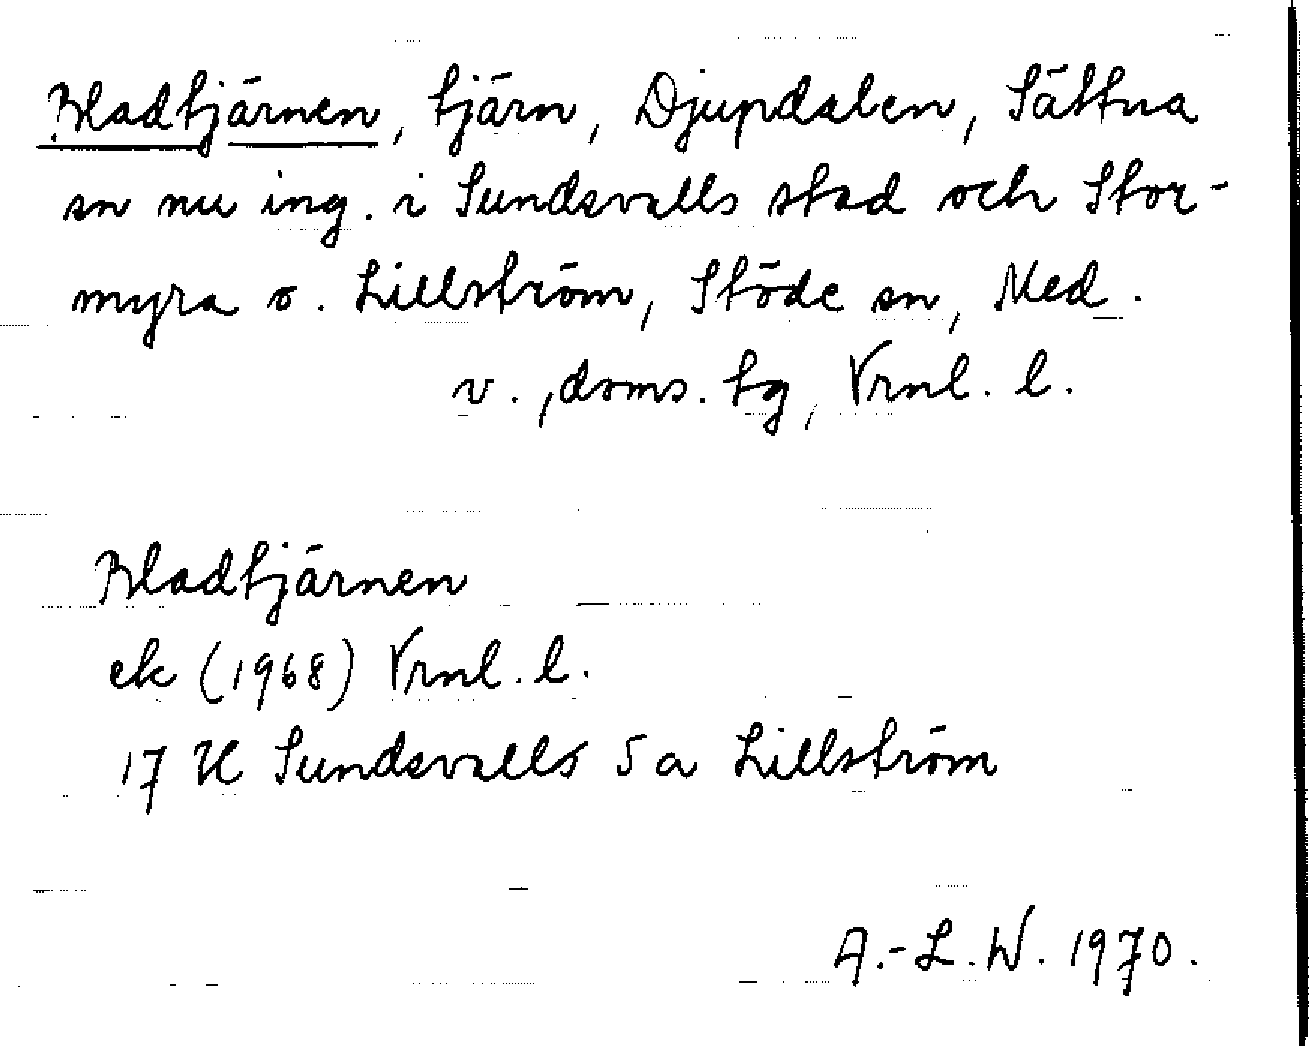 Bladtjärnen, tjärn, Djupdalen, Sättna
sn nu ing. i Sundsvalls stad och Stor-
myra o. Lillström, Stöde sn, Med.
v., doms. tg, Vrnl. l.
Bladtjärnen
ek (1968) Vrnl. l.
17 H Sundsvalls 5 a Lillström
A.-L.W. 1970.